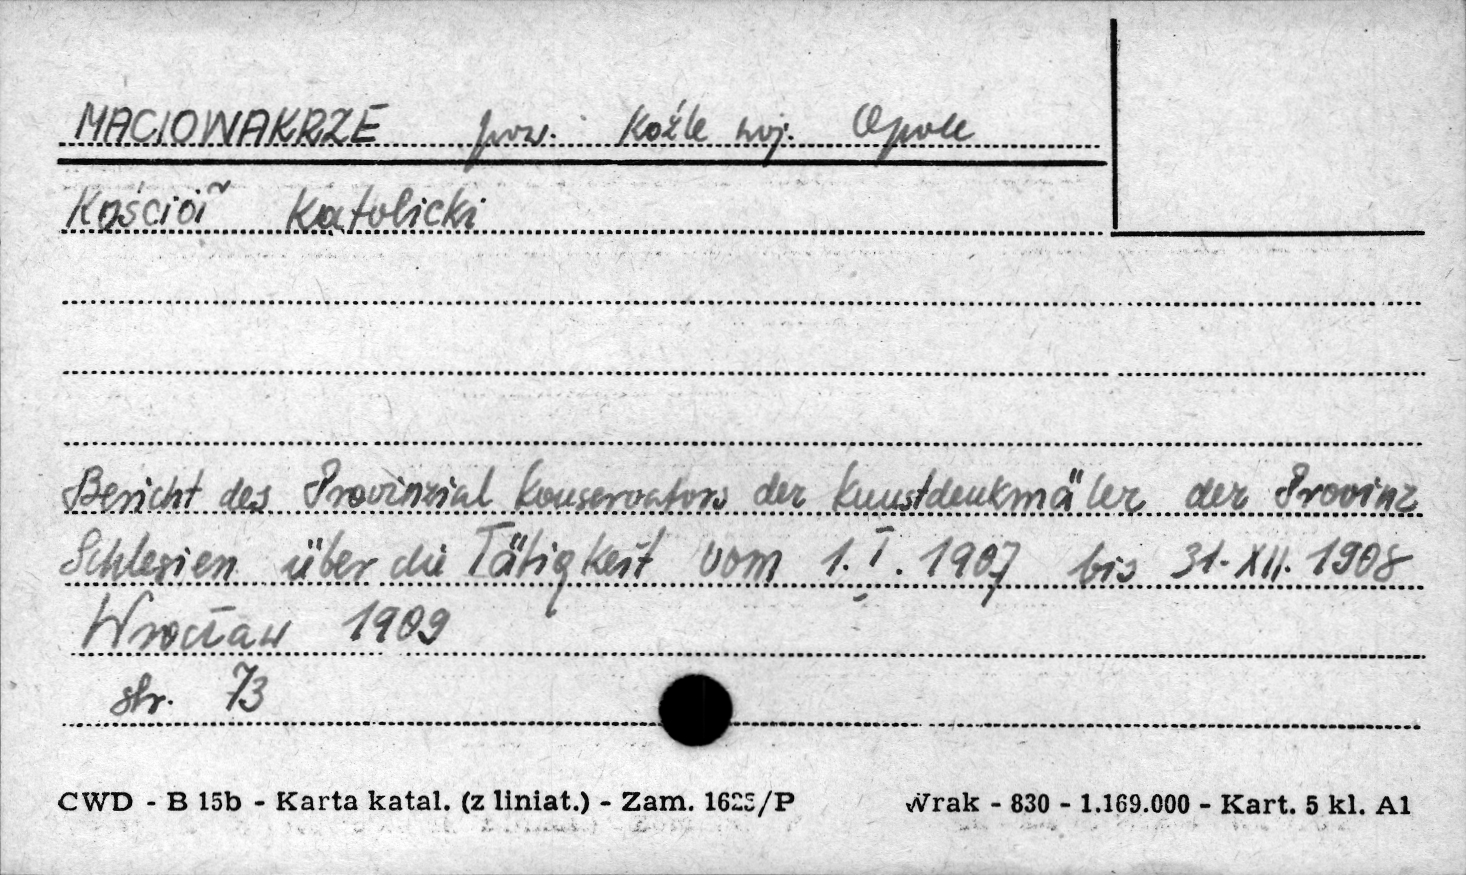 MACIOWAKRZE pow. Koźle woj. Opole
Kościół Katolicki
Bericht des Provinzial Konservators der Kunstdenkmäler der Provinz
Schlesien über die Tätigkeit vom 1.I.1907 bis 31.XII.1908
Wrocław 1909
str. 73
CWD - B 15b - Karta katal. (z liniat.) - Zam. 1625/P Wrak - 830 - 1.169.000 - Kart. 5 kl. A1